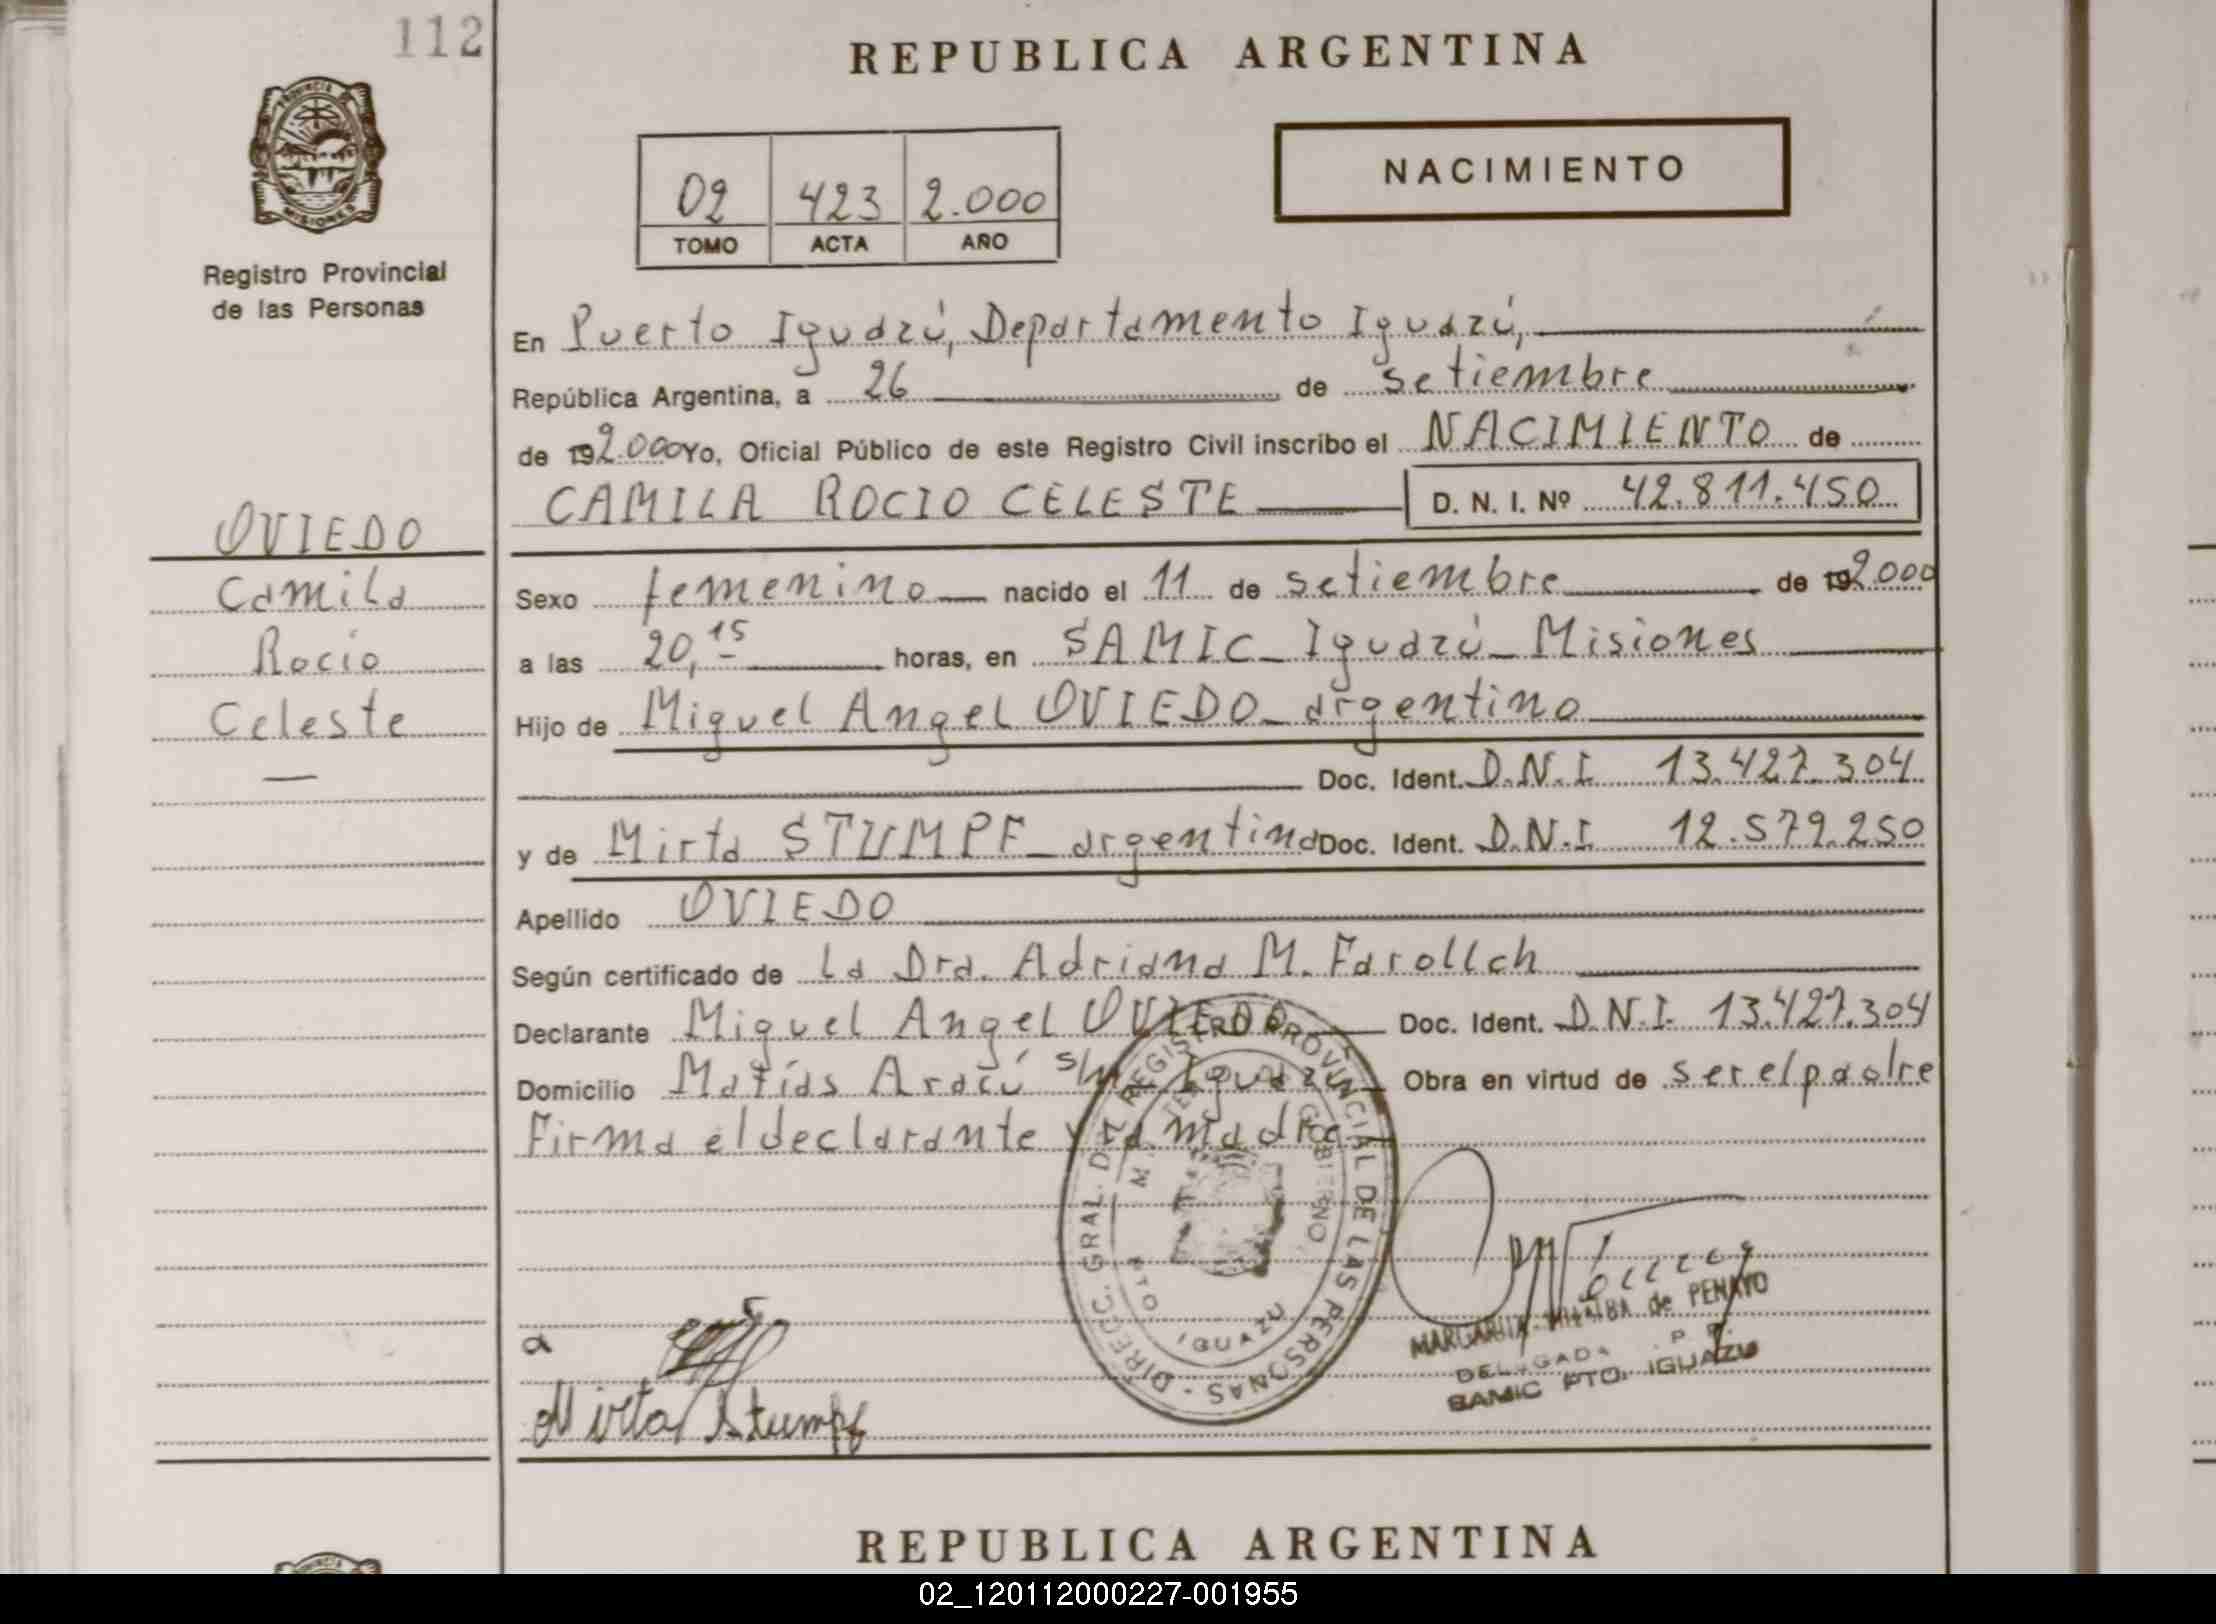 112
REPUBLICA ARGENTINA
PROVINCIA DE
MISIONES
Registro Provincial
de las Personas
NACIMIENTO
02 423 2.000
TOMO ACTA AÑO
En Puerto Iguazú, Departamento Iguazú,
República Argentina, a 26 de setiembre
de 192.000 Yo, Oficial Público de este Registro Civil inscribo el NACIMIENTO de
CAMILA ROCIO CELESTE D. N. I. Nº 42.811.450
OVIEDO
Camila
Rocio
Celeste
Sexo femenino nacido el 11 de setiembre de 192000
a las 20,15 horas, en SAMIC_ Iguazú_ Misiones
Hijo de Miguel Angel OVIEDO_ argentino
Doc. Ident. D.N.I. 13.427.304
y de Mirta STUMPF_ argentina Doc. Ident. D.N.I. 12.579.250
Apellido OVIEDO
Según certificado de la Dra. Adriana M. Farollch
Declarante Miguel Angel OVIEDO Doc. Ident. D.N.I. 13.427.304
Domicilio Matías Aracú s/n Iguazú Obra en virtud de ser el padre
Firma el declarante y la madre
DIRECC. GRAL. DEL REGISTRO PROVINCIAL DE LAS PERSONAS -
GOBIERNO
PTO. IGUAZU
MARGARITA de PENAYO
DELEGADA
SAMIC PTO. IGUAZU
Mirta Stumpf
REPUBLICA ARGENTINA
02_120112000227-001955